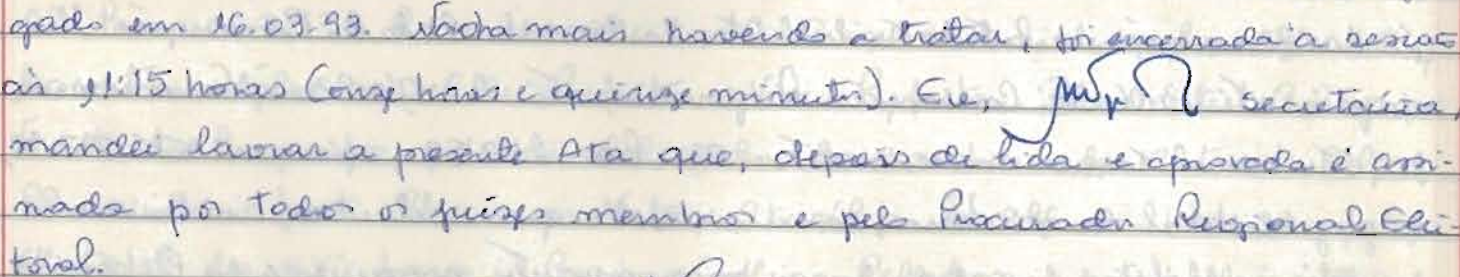 gado em 16.03.93. Nada mais havendo a tratar, foi encerrada a sessão
às 11:15 horas (onze horas e quinze minutos). Eu, secretária,
mandei lavrar a presente Ata que, depois de lida e aprovada é assi-
nada por todos os juízes membros e pelo Procurador Regional Elei-
toral.